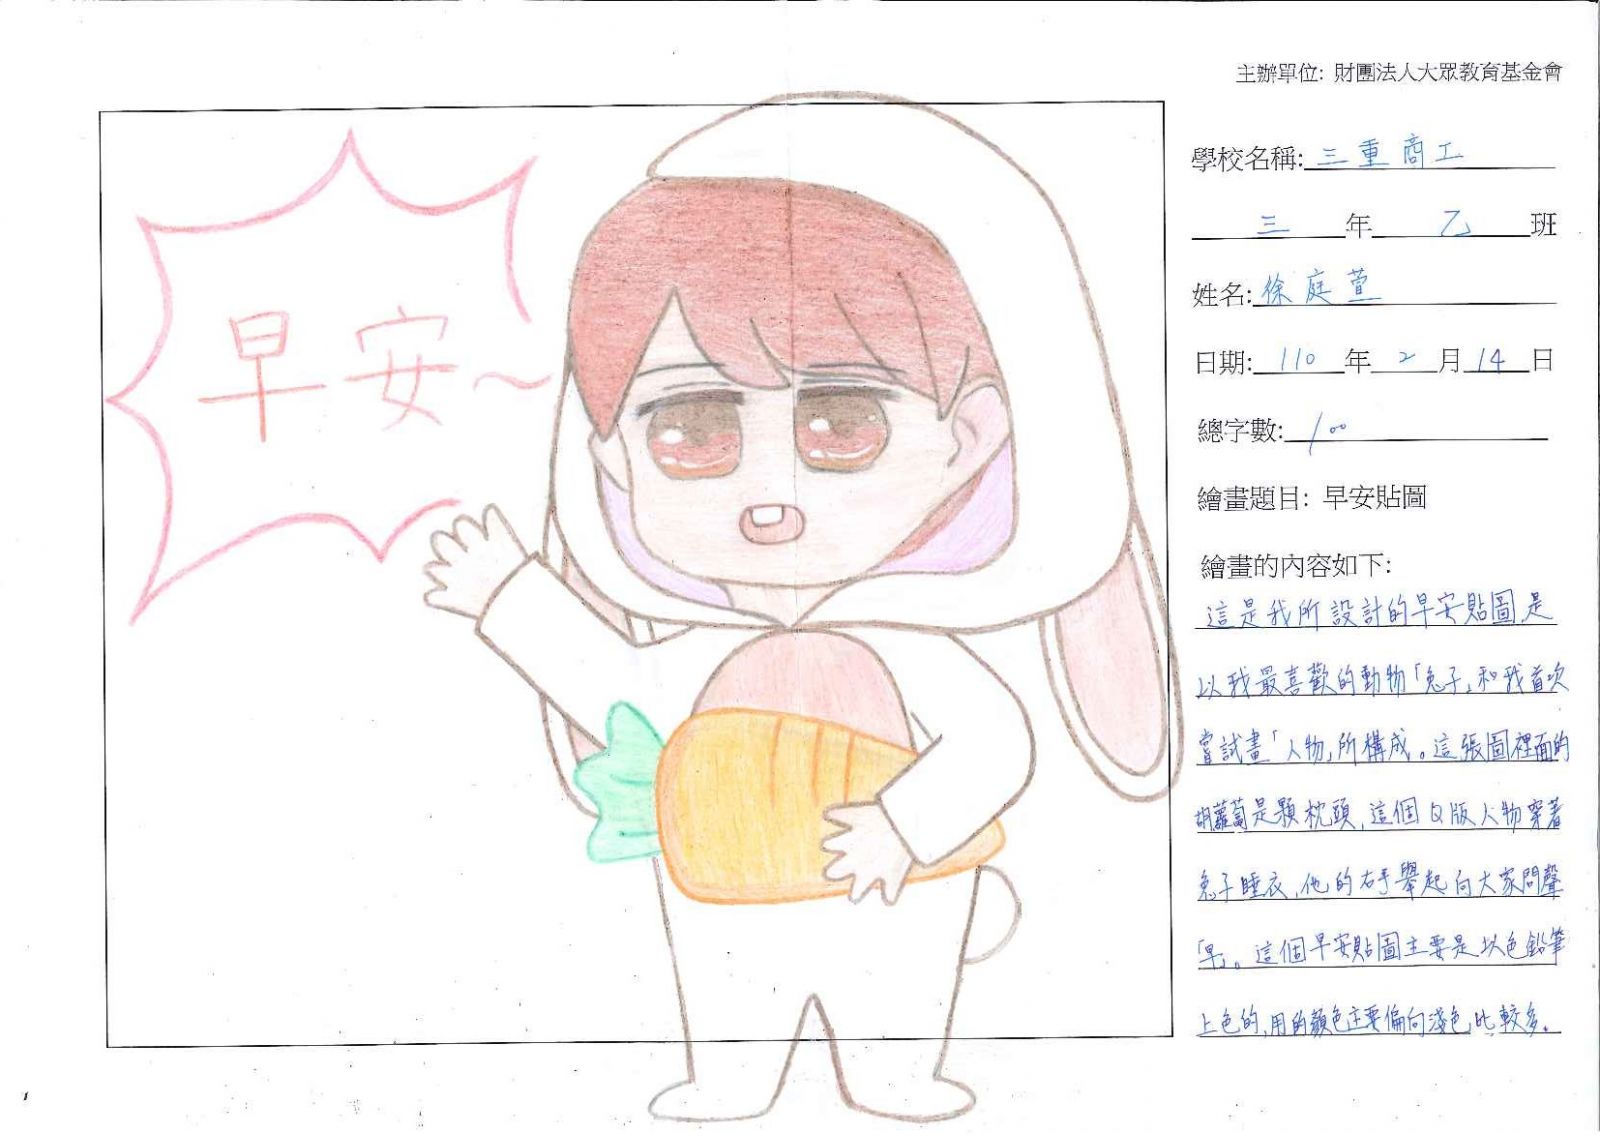 主辦單位: 財團法人大眾教育基金會
早安~
學校名稱: 三重商工
三年乙班
姓名: 徐庭萱
日期: 110年2月14日
總字數: 100
繪畫題目: 早安貼圖
繪畫的內容如下:
這是我所設計的早安貼圖,是
以我最喜歡的動物「兔子」和我首次
嘗試畫「人物」所構成。這張圖裡面的
胡蘿蔔是顆枕頭,這個Q版人物穿著
兔子睡衣,他的右手舉起向大家問聲
「早」。這個早安貼圖主要是以色鉛筆
上色的,用的顏色主要偏向淺色比較多。